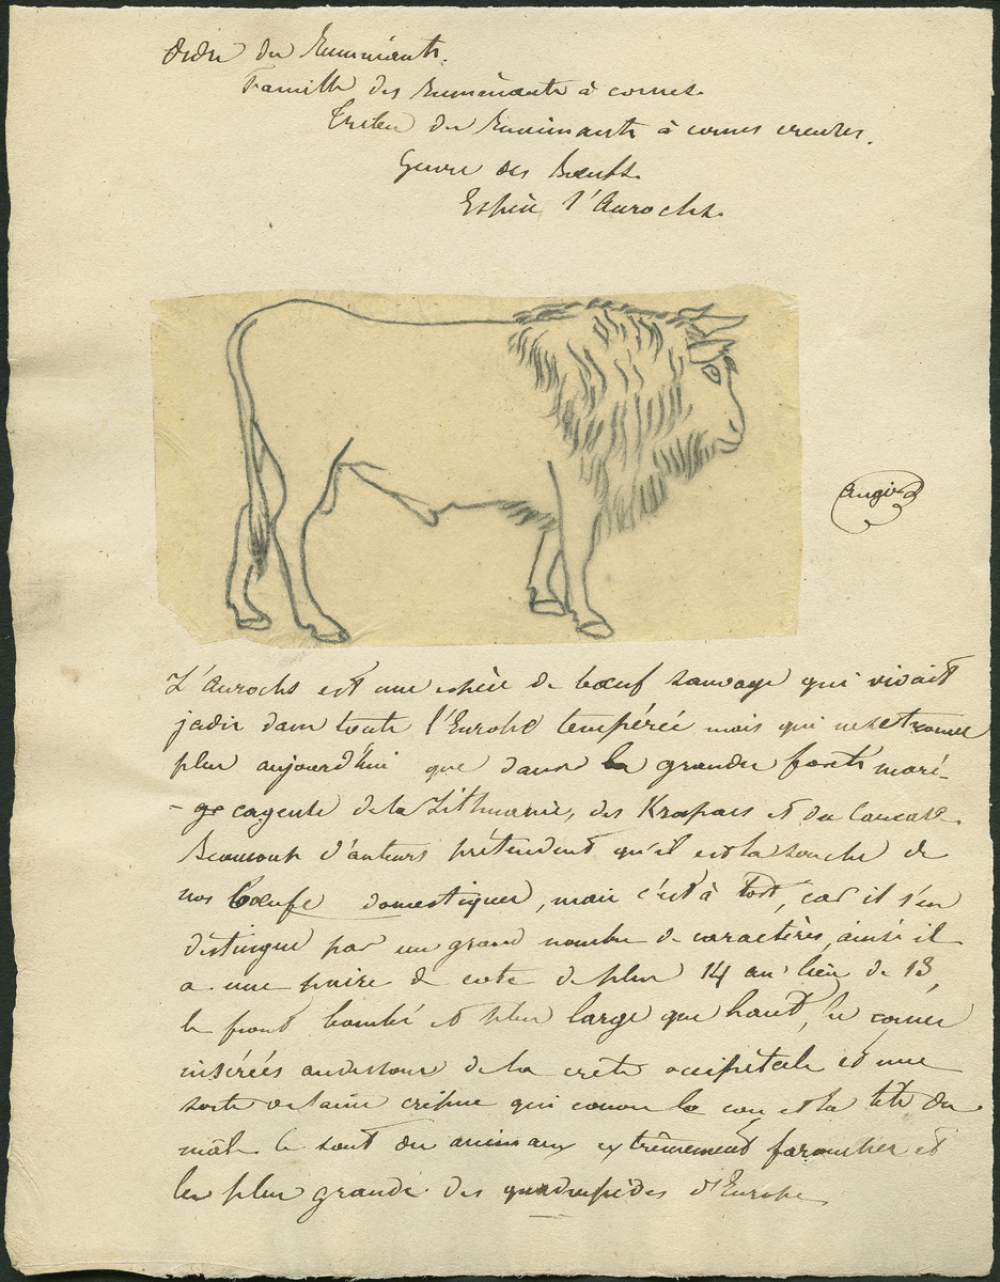 Ordre des Ruminants.
Famille des Ruminants à cornes.
Tribu des Ruminants à cornes creuses.
Genre des Boeufs.
Espèce l'Aurochs.
Angi
L'Aurochs est une espèce de boeuf sauvage qui vivait
jadis dans toute l'Europe tempérée mais qui ne se trouve
plus aujourd'hui que dans les grandes forêts maré-
- cageuses de la Lithuanie, des Krapacs et du Caucase.
Beaucoup d'auteurs prétendent qu'il est la souche de
nos boeufs domestiques, mais c'est à tort, car il s'en
distingue par un grand nombre de caractères, ainsi il
a une paire de cote de plus 14 au lieu de 13,
le front bombé et plus large que haut, les cornes
insérées au dessous de la crête occipitale et une
sorte de laine crépue qui couvre le cou et la tête du
mâle. Ce sont des animaux extrêmement farouches et
les plus grands des quadrupèdes d'Europe.